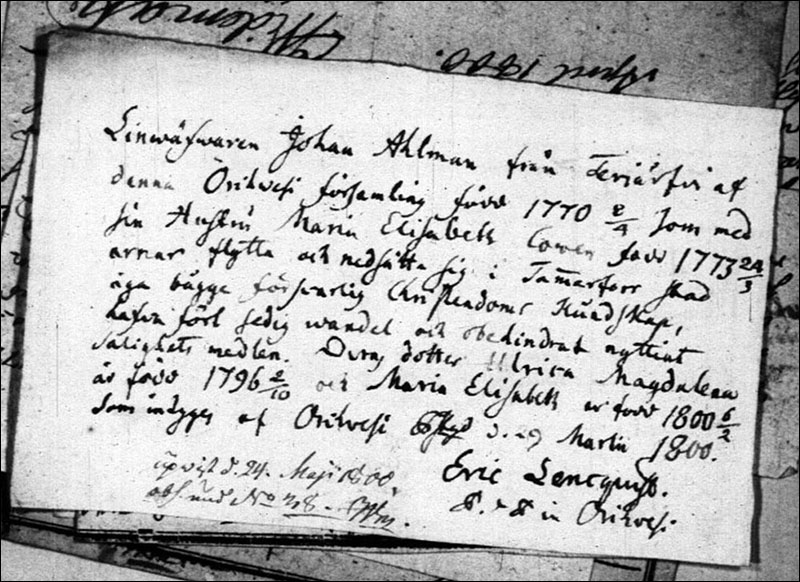 April 1800.
Linwäfwaren Johan Ahlman från Terjärfvi af
denna Örihwesi församling född 1770 2/4 som med
sin Hustru Maria Elisabeth född 1773 24/3
arnar flytta och nedsätta sig i Tammerfors stad
äga bägge försvarlig Christendoms Kundskap,
hafva fört sedig wandel och obehindrat nyttiat
salighets medlen. Deras dotter Ulrica Magdalena
är född 1796 2/10 och Maria Elisabeth är född 1800 6/2
som intygas af Orihwesi d. 29 Martii 1800.
Eric Lencqvist.
P. & P. in Orihwesi
upvist d. 24. Maji 1800.
No 48.